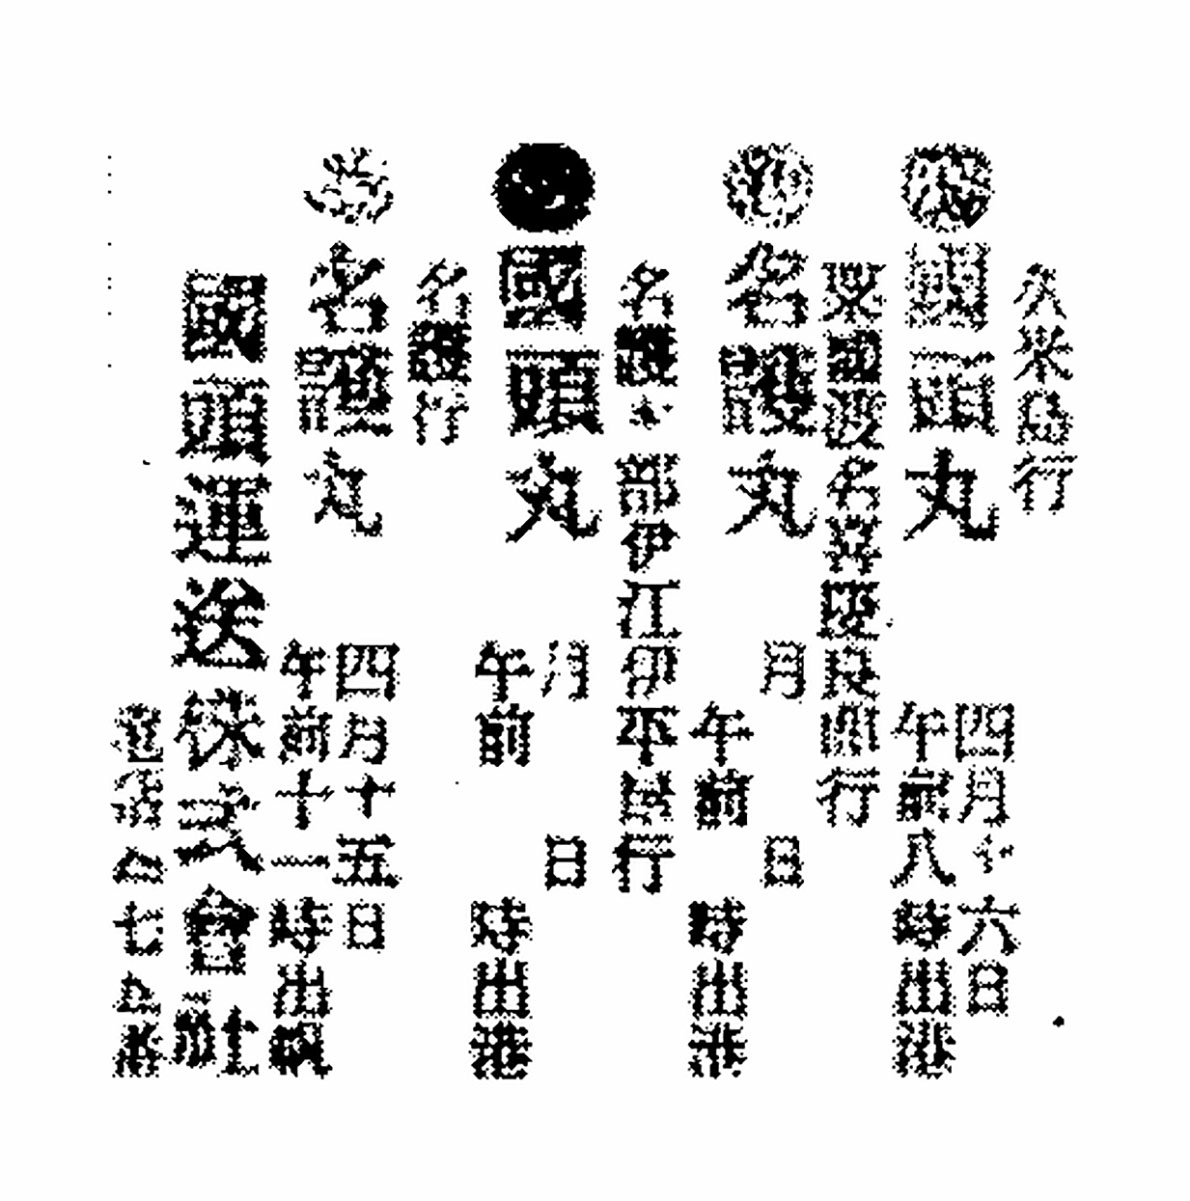 久米島行
國頭丸
四月十六日
午前八時出港
粟國渡名喜慶良間行
名護丸
月　日
午前　時出港
名護本部伊江伊平屋行
國頭丸
月　日
午前　時出港
名護行
名護丸
四月十五日
午前十一時出帆
國頭運送株式會社
電話